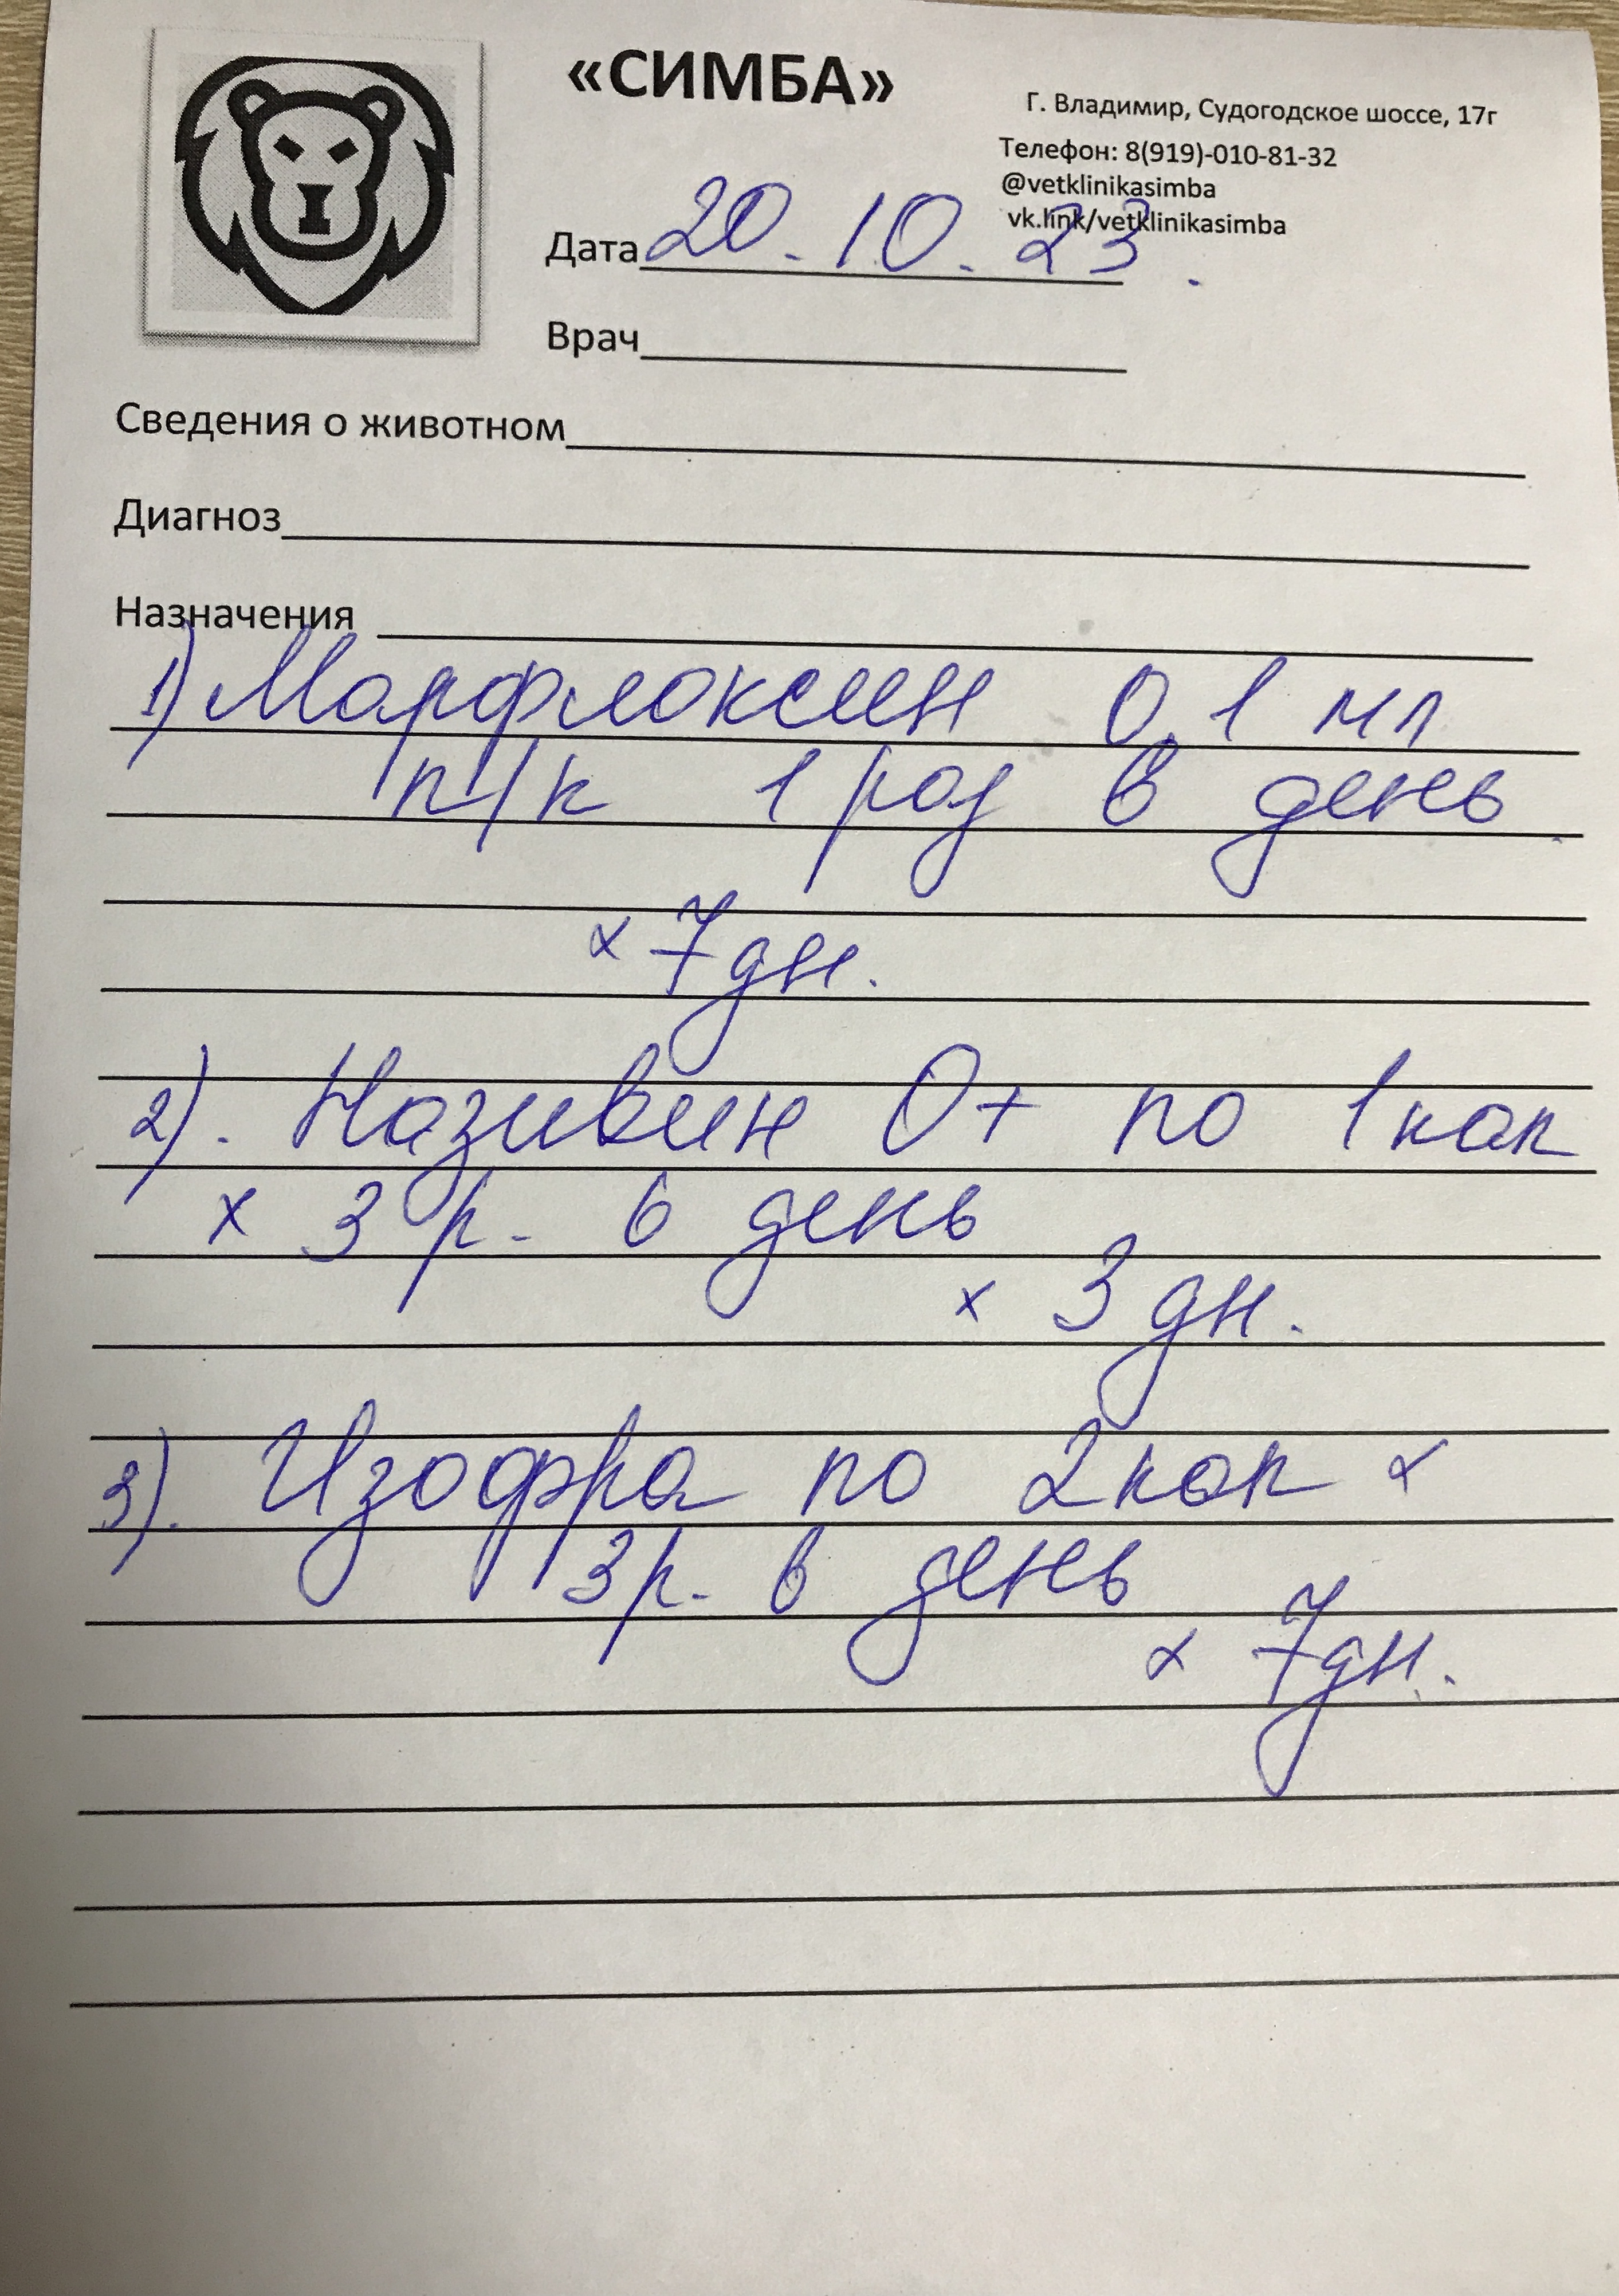 «СИМБА»
Г. Владимир, Судогодское шоссе, 17г
Телефон: 8(919)-010-81-32
@vetklinikasimba
vk.link/vetklinikasimba
Дата 20.10.23.
Врач
Сведения о животном
Диагноз
Назначения
1) Марфлоксин 0,1 мл
п/к 1 раз в день
x 7 дн.
2). Називин 0+ по 1 кап
x 3 р. в день
x 3 дн.
3). Изофра по 2 кап x
3 р. в день
x 7 дн.